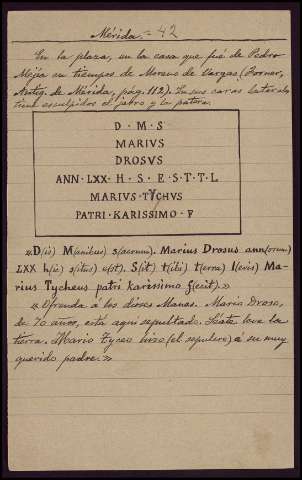 Mérida.= 42
En la plaza, en la casa que fué de Pedro
Mejía en tiempos de Moreno de Vargas (Forner,
Antig. de Mérida, pág. 112). En sus caras laterales
tiene esculpidos el jarro y la pátera.
D · M · S
MARIUS
DROSUS
ANN · LXX · H · S · E · S · T · T · L
MARIUS · TYCHUS
PATRI · KARISSIMO · F
«D(is) M(anibus) s(acrum). Marius Drosus ann(orum)
LXX h(ic) s(itus) e(st). S(it) t(ibi) t(erra) l(evis) Ma-
rius Tycheus patri karissimo f(ecit).»
«Ofrenda á los dioses Manes. Mario Droso,
de 70 años, está aquí sepultado. Séate leve la
tierra. Mario Tyceo hizo (el sepulcro) á su muy
querido padre.»